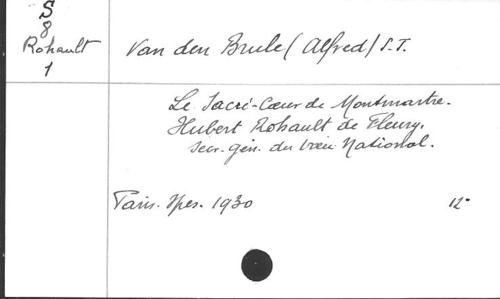 S
8
Rohault
1
Van den Brule (Alfred) S.T.
Le Sacré-Cœur de Montmartre.
Hubert Rohault de Fleury.
secr. gén. du vœu National.
Paris. Spes. 1930 12°